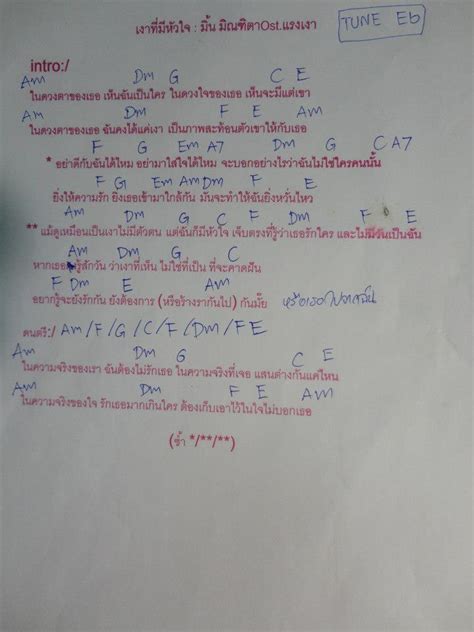 เงาที่มีหัวใจ : มิ้น มิณฑิตาOst.แรงเงา
TUNE Eb
intro:/
Am Dm G C E
ในดวงตาของเธอ เห็นฉันเป็นใคร ในดวงใจของเธอ เห็นจะมีแต่เขา
Am Dm F E Am
ในดวงตาของเธอ ฉันคงได้แค่เงา เป็นภาพสะท้อนตัวเขาให้กับเธอ
F G Em A7 Dm G C A7
* อย่าดีกับฉันได้ไหม อย่ามาใส่ใจได้ไหม จะบอกอย่างไรว่าฉันไม่ใช่ใครคนนั้น
F G Em Am Dm F E
ยิ่งให้ความรัก ยิ่งเธอเข้ามาใกล้กัน มันจะทำให้ฉันยิ่งหวั่นไหว
Am Dm G C F Dm F E
** แม้ดูเหมือนเป็นเงาไม่มีตัวตน แต่ฉันก็มีหัวใจ เจ็บตรงที่รู้ว่าเธอรักใคร และไม่มีวันเป็นฉัน
Am Dm G C
หากเธอรู้สักวัน ว่าเงาที่เห็น ไม่ใช่ที่เป็น ที่จะคาดฝัน
F Dm E Am
อยากรู้จะยังรักกัน ยังต้องการ (หรือร้างรากันไป) กันมั้ย หรือเธอ
ดนตรี:/ Am/F/G/C/F/Dm/F E
Am Dm G C E
ในความจริงของเรา ฉันต้องไม่รักเธอ ในความจริงที่เจอ แสนต่างกันแค่ไหน
Am Dm F E Am
ในความจริงของใจ รักเธอมากเกินใคร ต้องเก็บเอาไว้ในใจไม่บอกเธอ
(ซ้ำ */**/**)